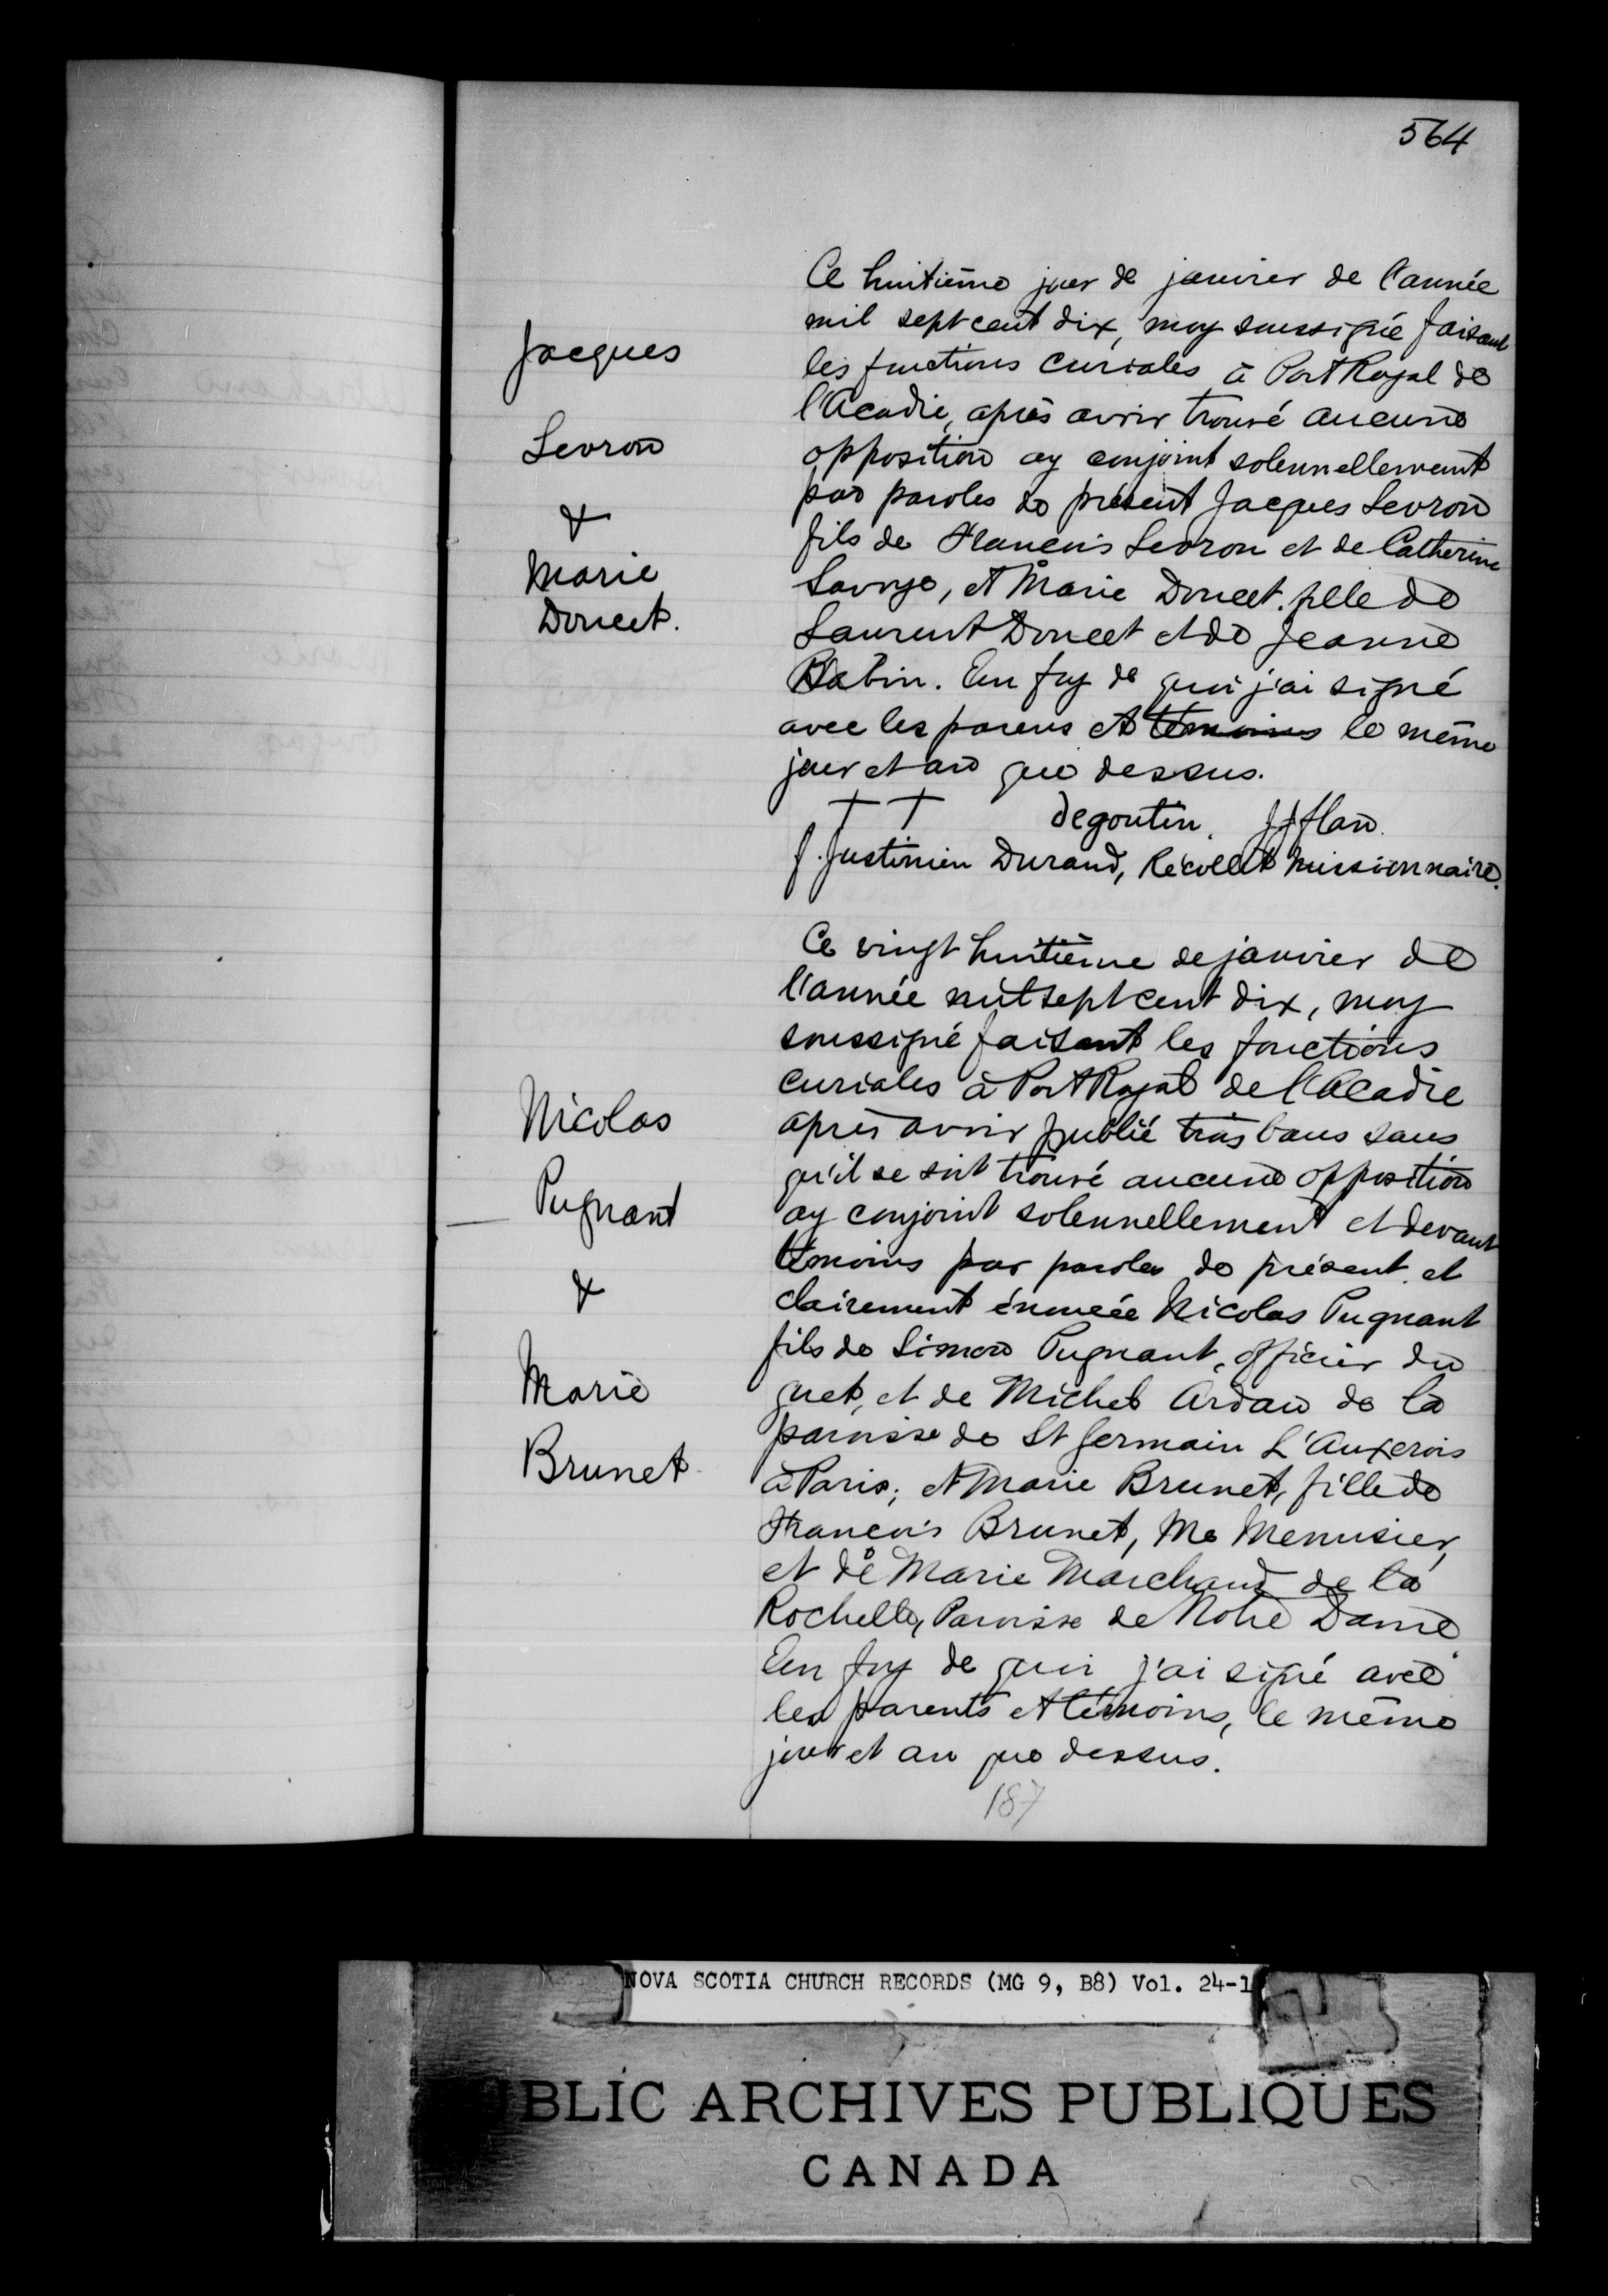 564
Ce huitième jour de janvier de l'année
mil sept cent dix, moy soussigné faisant
les fonctions curiales à Port Royal de
l'Acadie, après avoir trouvé aucune
opposition ay conjoint solennellement
par paroles de présent Jacques Levron
fils de Francois Levron et de Catherine
Savoye, et Marie Doucet fille de
Laurent Doucet et de Jeanne
Babin. En foy de quoi j'ai signé
avec les parens et témoins le même
jour et an que dessus.
† † degoutin.
f. Justinien Durand, Récollet Missionnaire.
Jacques
Levron
&
Marie
Doucet.
Ce vingt huitième de janvier de
l'année mil sept cent dix, moy
soussigné faisant les fonctions
curiales à Port Royal de l'Acadie
après avoir publié trois bans sans
qu'il se soit trouvé aucune opposition
ay conjoint solennellement et devant
témoins par paroles de présent et
clairement énoncée Nicolas Pugnant
fils de Simon Pugnant, officier du
guet, et de Michel Ardan de la
paroisse de St Germain L'Auxerois
à Paris; et Marie Brunet, fille de
Francois Brunet, Me Menusier,
et de Marie Marchand de la
Rochelle, Paroisse de Notre Dame
En foy de quoi j'ai signé avec
les parents et témoins, le même
jour et an que dessus.
Nicolas
Pugnant
&
Marie
Brunet
187
NOVA SCOTIA CHURCH RECORDS (MG 9, B8) Vol. 24-1
BLIC ARCHIVES PUBLIQUES
CANADA